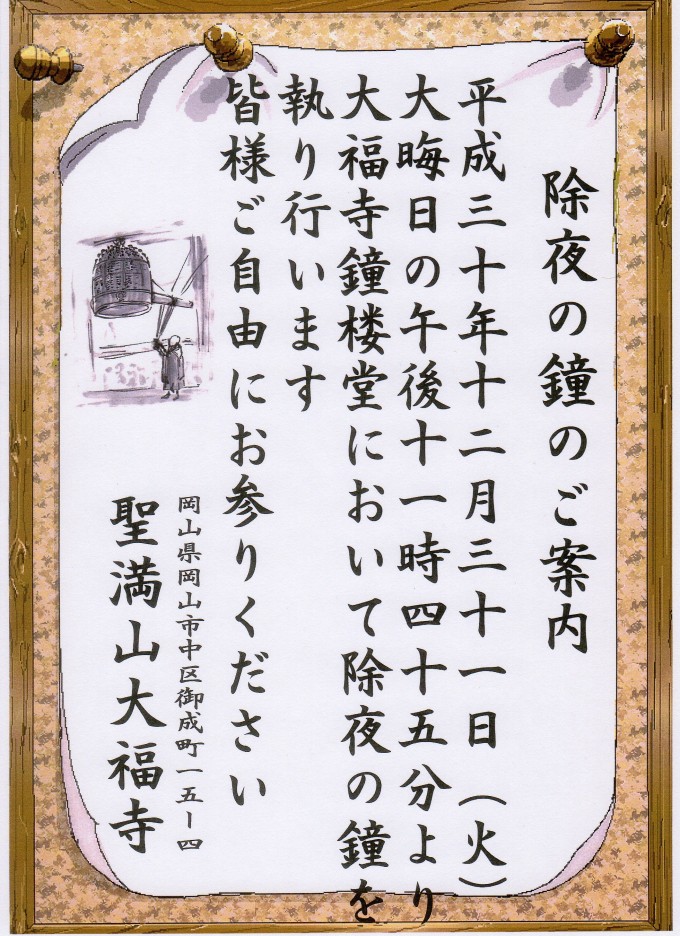 除夜の鐘のご案内
平成三十年十二月三十一日（火）
大晦日の午後十一時四十五分より
大福寺鐘楼堂において除夜の鐘を
執り行います
皆様ご自由にお参りください
岡山県岡山市中区御成町一五ー四
聖満山大福寺